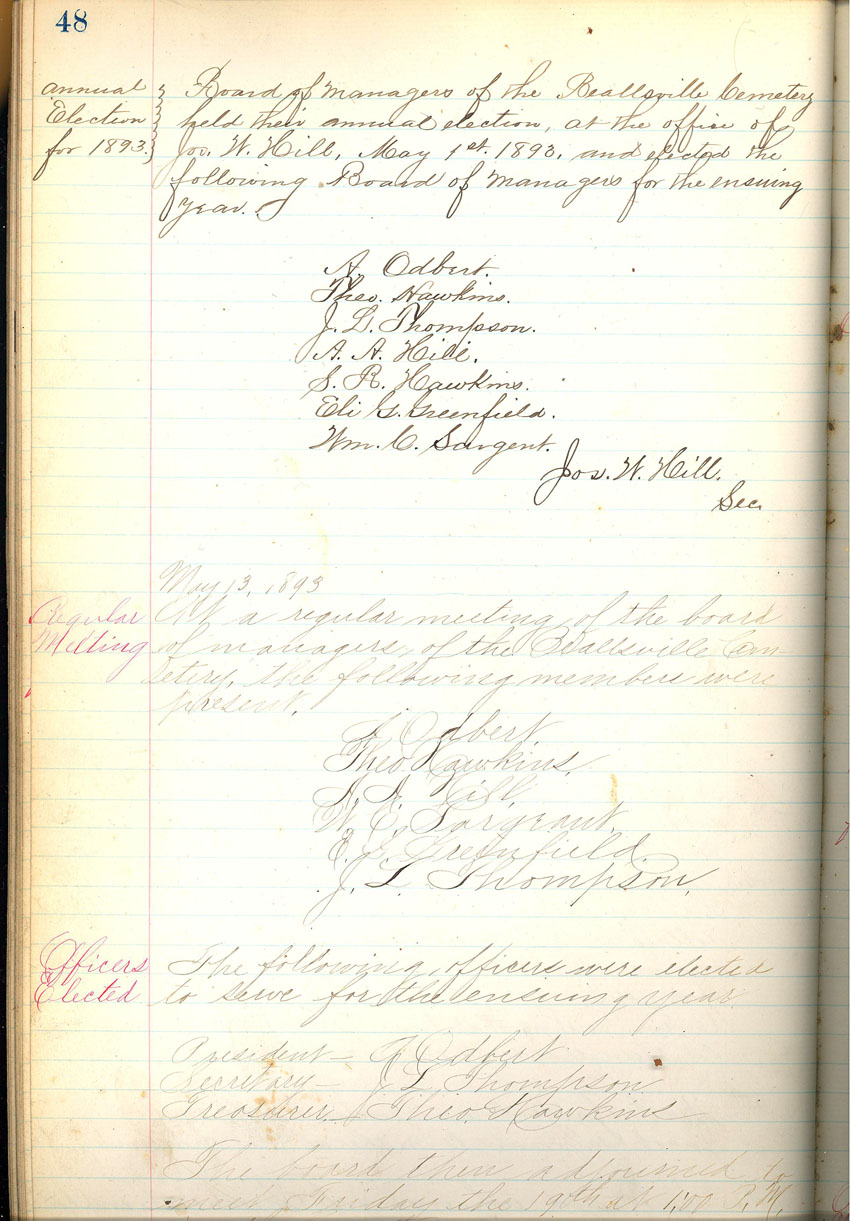 48
annual
Election
for 1893.
Board of managers of the Beallsville Cemetery
held their annual election, at the office of
Jos. W. Hill, May 1st. 1893. and elected the
following Board of managers for the ensuing
year.
A. Odbert.
Theo. Hawkins.
J. L. Thompson.
A. A. Hill.
S. R. Hawkins.
Eli G. Greenfield.
Wm. C. Sargent.
Jos. W. Hill.
Sec.
May 13, 1893
Regular
Meeting
At a regular meeting of the board
of managers, of the Beallsville Cem-
etery, the following members were
present.
A. Odbert.
Theo Hawkins.
A. A. Hill.
W. C. Sargeant.
E. G. Greenfield.
J. L. Thompson.
Officers
Elected
The following officers were elected
to serve for the ensuing year
President — A Odbert
Secretary — J L Thompson
Treasurer — Theo. Hawkins
The board then adjourned to
meet Friday the 19th at 1.00 P.M.